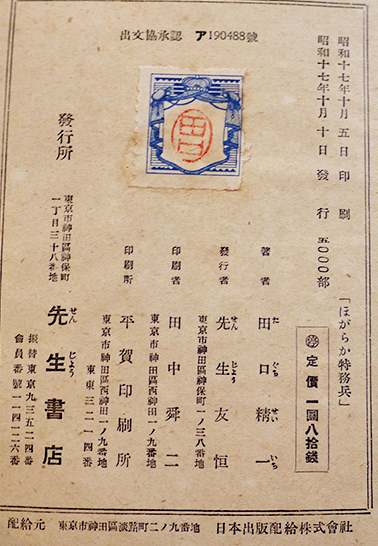 出文協承認 ア190488號
昭和十七年十月五日印刷
昭和十七年十月十日發行 五〇〇〇部
「ほがらか特務兵」
定價 一圓八拾錢
著者 田口精一
たぐちせいいち
發行者 先生友恒
せんじょう
東京市神田區神保町一ノ三八番地
印刷者 田中舜二
東京市神田區西神田一ノ九番地
印刷所 平賀印刷所
東京市神田區西神田一ノ九番地
東東三二一四番
發行所
東京市神田區神保町
一丁目三十八番地
先生書店
せんじょう
振替東京九三五二四番
會員番號一一四一二六番
配給元 東京市神田區淡路町二ノ九番地 日本出版配給株式會社